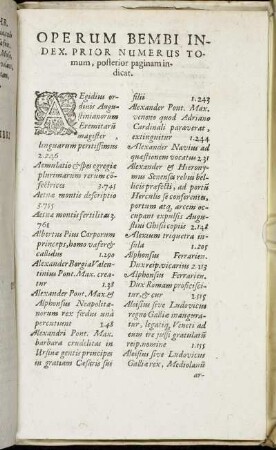 OPERUM BEMBI IN-
DEX. PRIOR NUMERUS TO-
mum, posterior paginam in-
dicat.
AEgidius or-
dinis Augu-
stinianorum
Eremitarũ
magister,
linguarum peritissimo
2.206
Aemulatio & spes egregia
plurimarum rerum cõ-
Aetnæ montis descriptio
Aetnæ montis fertilitas 3.
764
Albertus Pius Carporum
princeps, homo vafer &
callidus 1.290
Alexander Borgia Valen-
tinius Pont. Max. crea-
tur 1.38
Alexander Pont. Max. &
Alphonsus Neapolita-
norum rex fœdus unà
percutiunt 1.48
Alexandri Pont. Max.
barbara crudelitas in
Ursinæ gentis principes
in gratiam Cæsaris sui
filii 1.243
Alexander Pont. Max.
veneno quod Adriano
Cardinali paraverat,
extinguitur 1.244
Alexander Navius ad
quæstionem vocatur 2.31
Alexander & Hierony-
mus Senenses rebus bel-
licis præfecti, ad portũ
Herculis se conferentes,
portum atq; arcem oc-
cupant expulsis Augu-
stini Ghisii copiis 2.148
Alexum triquetra in-
sula 1.205
Alphonsus Ferrarien.
Dux reip. vicarius 2.113
Alphonsus Ferrarien.
Dux Romam profici sci-
tur, & cur 2.115
Aloisius sive Ludovicus
regno Galliæ inaugura-
tur, legatiq; Veneti ad
eum ire jussi gratulatũ
reip. nomine 1.155
Aloisius sive Ludovicus
Galliæ rex, Mediolani
ar-